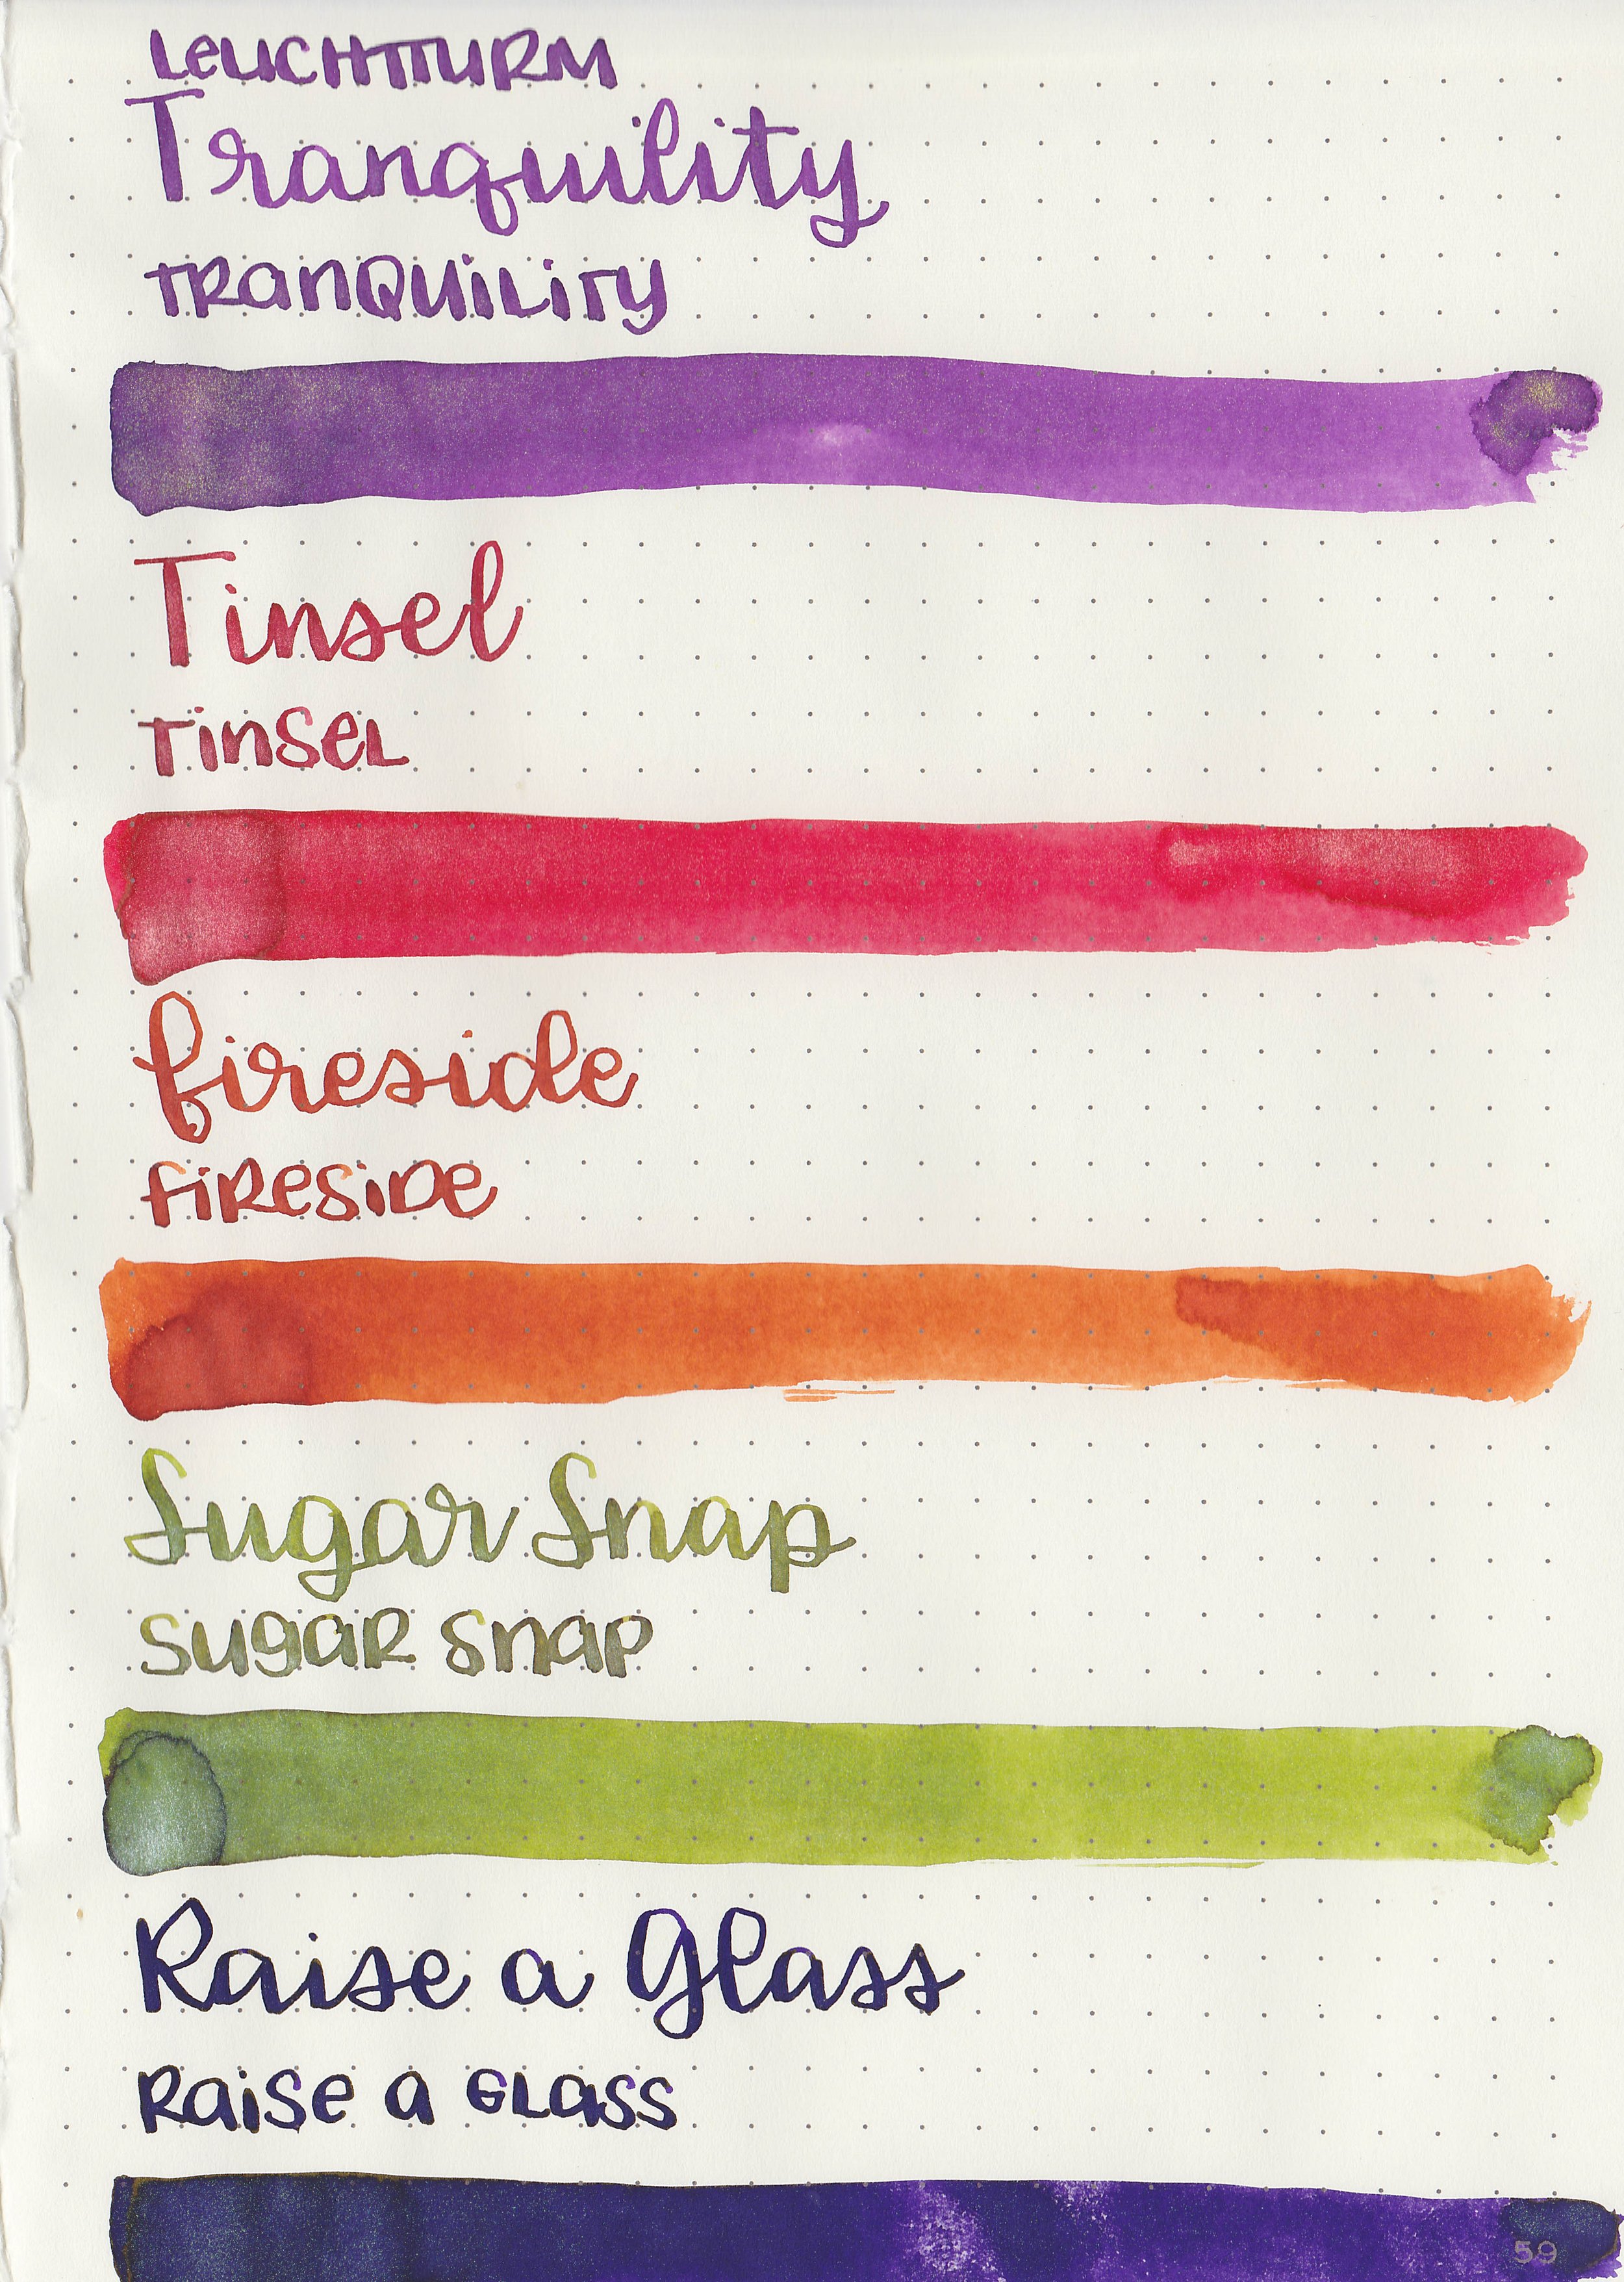 LEUCHTTURM
Tranquility
TRANQUILITY
Tinsel
TINSEL
fireside
FIRESIDE
Sugar Snap
SUGAR SNAP
Raise a Glass
RAISE A GLASS
59